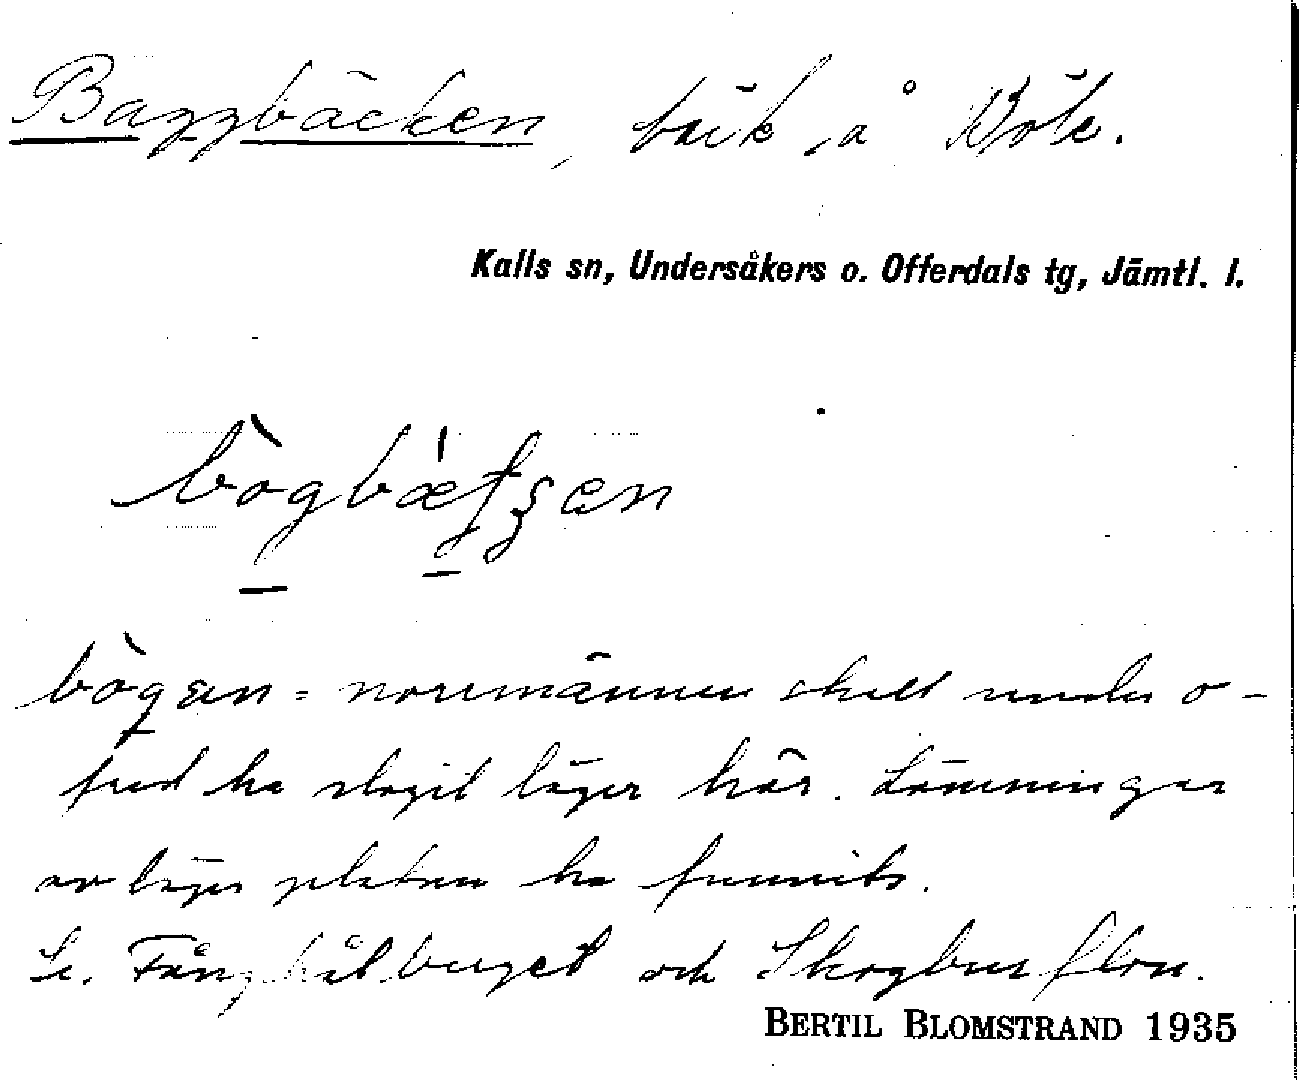 Baggbäcken, bäck, å Böle.
Kalls sn, Undersåkers o. Offerdals tg, Jämtl. l.
bògbæ̀tʂen
bògan = norrmännen skall under o-
fred ha slagit läger här. Lämningar
av lägerplatsen ha funnits.
Se. Fånghålberget och Skogbusflon.
BERTIL BLOMSTRAND 1935